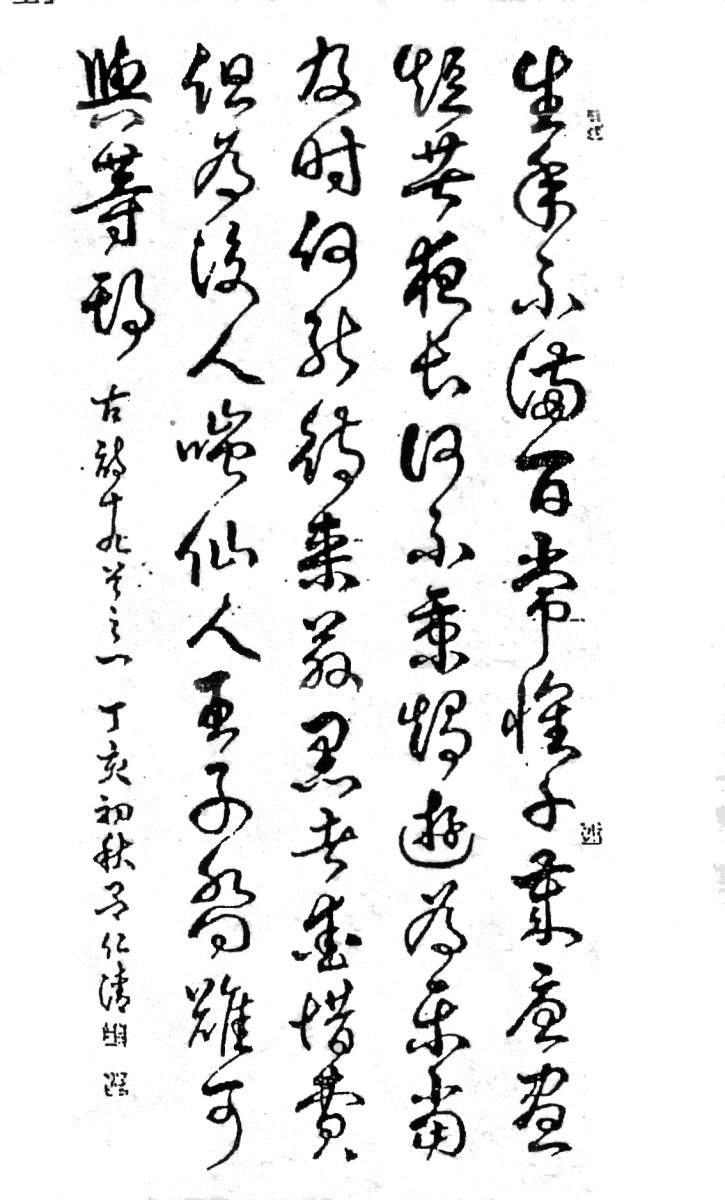 生年不滿百常懷千歲憂晝
短苦夜長何不秉燭遊為樂當
及时何能待來茲愚者愛惜費
但為後人嗤仙人王子喬難可
與等期 古詩十九首之一 丁亥初秋 仁清